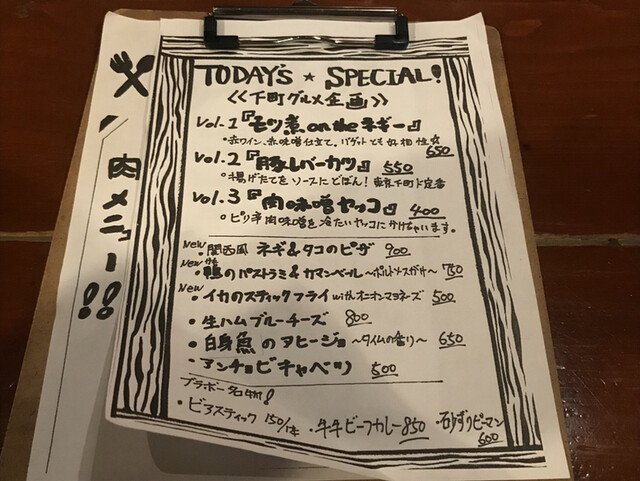 TODAY'S ★ SPECIAL!
<<下町グルメ企画>>
vol.1『モツ煮 on the ネギー』
・赤ワイン、赤味噌仕立て。バゲットとも好相性☆ 650
vol.2『豚レバーカツ』 550
・揚げたてをソースにどぼん!東京下町ド定番
vol.3『肉味噌ヤッコ』 400
・ピリ辛肉味噌を冷たいヤッコにかけちゃいます。
New ・関西風 ネギ&タコのピザ 900
New ・鴨のパストラミ&カマンベール 〜ポルトソースがけ〜 750
かも
New ・イカのスティックフライ with オニオンマヨネーズ 500
・生ハムブルーチーズ 800
・白身魚のアヒージョ 〜タイムの香り〜 650
・アンチョビキャベツ 500
ブラボー名物!
・ビアスティック 150/1本 ・牛牛ビーフカレー 850 ・砂ずりピーマン
500
肉メニュー!!